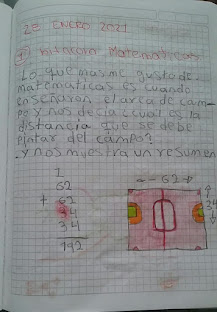 2E ENERO 2021
Bitácora Matematicas
Lo que mas me gusto de
matematicas es cuando
enseñaron el area de cam-
po y nos decia cual es la
distancia que se debe
pintar del campo?
.y nos muestra un resumen
1
62
+ 62
34
34
192
62
34